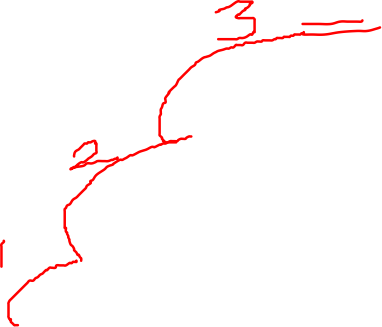 3 =
2
1